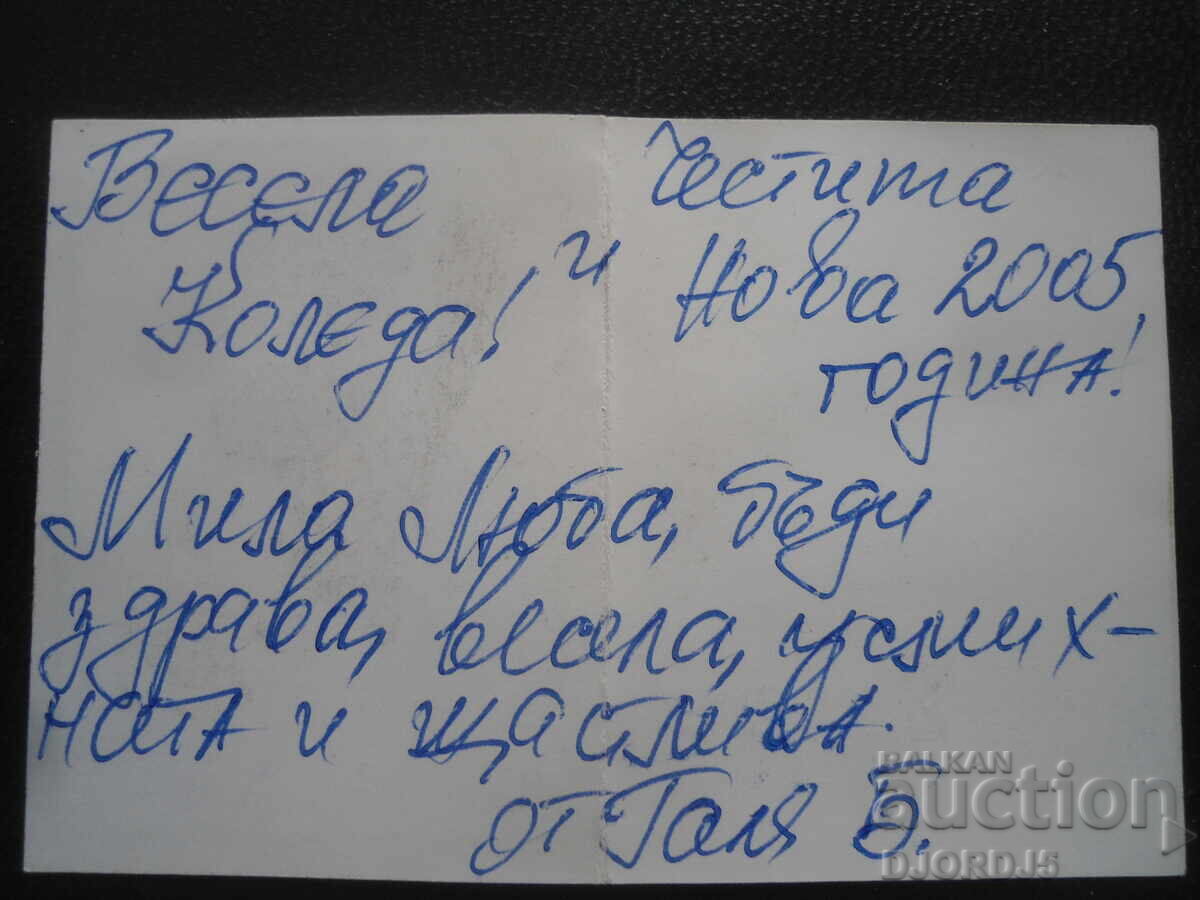 Весела
Коледа! и
Честита
Нова 2005,
година!
Мила Люба, бъди
здрава, весела, усмих-
ната и щастлива.
от Галя Б.
BALKAN
auction
DJORDJ5